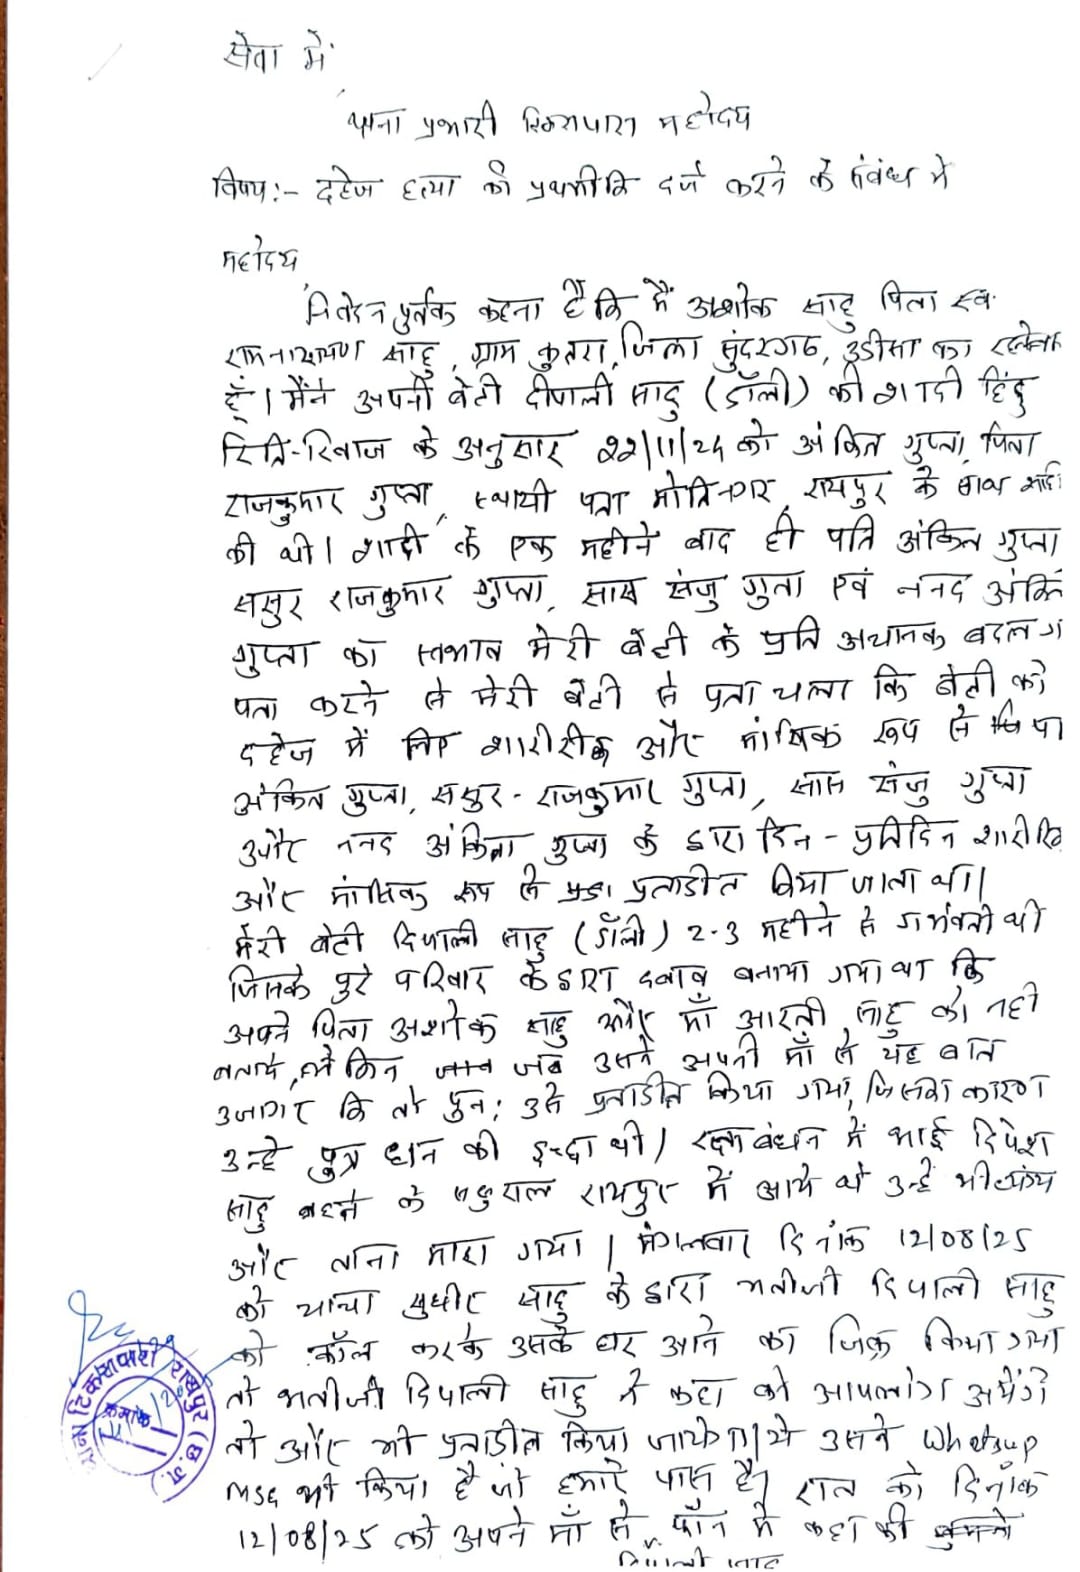 सेवा में
थाना प्रभारी टिकरापारा महोदय
विषय:- दहेज हत्या की प्रथमीकि दर्ज करने के संबंध में
महोदय
निवेदन पुर्वक कहना है कि मैं अशोक साहु पिता स्व.
रामनारायण साहु, ग्राम कुतरा, जिला सुंदरगढ, उडीसा का रहनेवा
हूँ। मैंने अपनी बेटी दीपाली साहु (डॉली) की शादी हिंदु
रिति-रिवाज के अनुसार 22/11/24 को अंकित गुप्ता, पिता
राजकुमार गुप्ता, स्थायी पता मोतिनगर, रायपुर के साथ शादी
की थी। शादी के एक महीने बाद ही पति अंकित गुप्ता
ससुर राजकुमार गुप्ता, सास संजु गुप्ता एवं ननद अंकि
गुप्ता का स्वभाव मेरी बेटी के प्रति अचानक बदल ग
पता करने से मेरी बेटी से पता चला कि बेटी को
दहेज में लिए शारीरीक और मांसिक रूप से पि पा
अंकित गुप्ता, ससुर - राजकुमार गुप्ता, सास संजु गुप्ता
और ननद अंकिता गुप्ता के द्वारा दिन - प्रतिदिन शारीरिक
और मांसिक रूप से प्रताडीत किया जाता था।
मेरी बेटी दिपाली साहु (डॉली) 2-3 महीने से गर्भवती थी
जिसके पुरे परिवार के द्वारा दबाव बनाया गया था कि
अपने पिता अशोक साहु और माँ आरती साहु को नही
बताये, लेकिन जब उसने अपनी माँ से यह बात
उजागर कि तो पुन: उसे प्रताडीत किया गया, जिसका कारण
उन्हे पुत्र धान की इच्छा थी। रक्षाबंधन में भाई दिपेश
साहु बहन के ससुराल रायपुर में आये थे उन्हे भी व्यंग्य
और ताना मारा गया। मंगलवार दिनांक 12/08/25
को चाचा सुधीर साहु के द्वारा भतीजी दिपाली साहु
को कॉल करके उसके घर आने का जिक्र किया गया
तो भतीजी दिपाली साहु ने कहा की आपलोग आयेंगे
तो और भी प्रताडीत किया जायेगा। ये उसने Whatsup
MSG भी किया है जो हमारे पास है। रात को दिनांक
12/08/25 को अपने माँ से फोन में कहा की
दिपाली साहु
थाना टिकरापारा रायपुर (छ.ग.)
क्रमांक